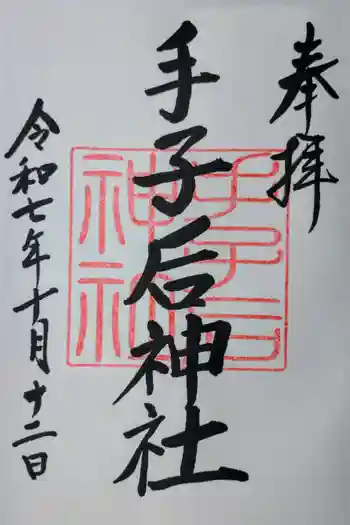 奉拝
手子后神社
令和七年十月十二日
手子后神社